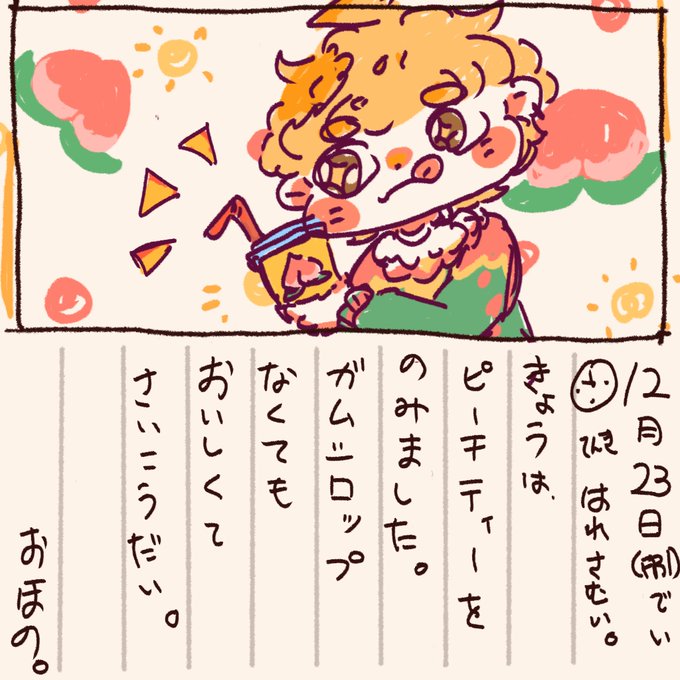 12月23日()でい
てんき はれさむい。
きょうは、
ピーチティーを
のみました。
ガムシロップ
なくても
おいしくて
さいこうだい。
おほの。